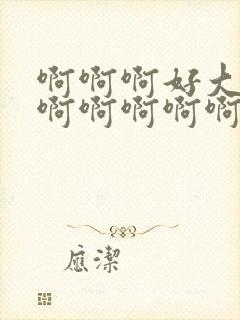 啊啊啊好大
啊啊啊啊啊
應潔